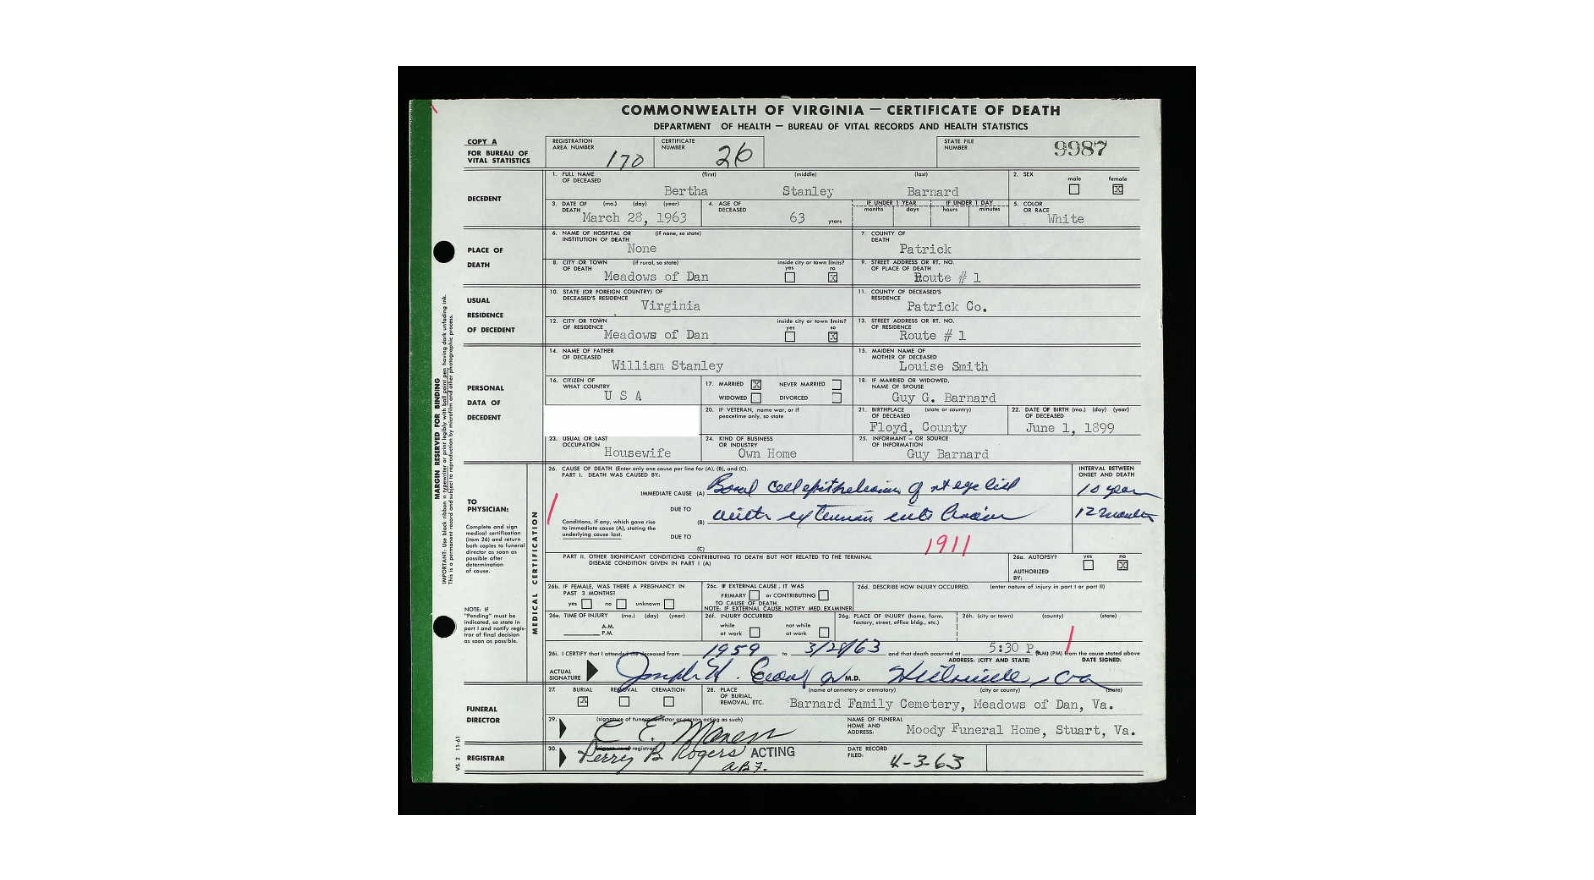 COMMONWEALTH OF VIRGINIA — CERTIFICATE OF DEATH
DEPARTMENT OF HEALTH — BUREAU OF VITAL RECORDS AND HEALTH STATISTICS
COPY A
FOR BUREAU OF VITAL STATISTICS
REGISTRATION AREA NUMBER 170
CERTIFICATE NUMBER 26
STATE FILE NUMBER 9987
DECEDENT
1. FULL NAME OF DECEASED (first) (middle) (last)
Bertha Stanley Barnard
2. SEX male female X
3. DATE OF DEATH (mo.) (day) (year) March 28, 1963
4. AGE OF DECEASED 63 years
IF UNDER 1 YEAR months days
IF UNDER 1 DAY hours minutes
5. COLOR OR RACE White
PLACE OF DEATH
6. NAME OF HOSPITAL OR INSTITUTION OF DEATH (if none, so state) None
7. COUNTY OF DEATH Patrick
8. CITY OR TOWN OF DEATH (if rural, so state) Meadows of Dan
inside city or town limits? yes no X
9. STREET ADDRESS OR RT. NO. OF PLACE OF DEATH Route # 1
USUAL RESIDENCE OF DECEDENT
10. STATE (OR FOREIGN COUNTRY) OF DECEASED'S RESIDENCE Virginia
11. COUNTY OF DECEASED'S RESIDENCE Patrick Co.
12. CITY OR TOWN OF RESIDENCE Meadows of Dan
inside city or town limits? yes no X
13. STREET ADDRESS OR RT. NO. OF RESIDENCE Route # 1
PERSONAL DATA OF DECEDENT
14. NAME OF FATHER OF DECEASED William Stanley
15. MAIDEN NAME OF MOTHER OF DECEASED Louise Smith
16. CITIZEN OF WHAT COUNTRY U S A
17. MARRIED X NEVER MARRIED
WIDOWED DIVORCED
18. IF MARRIED OR WIDOWED, NAME OF SPOUSE Guy G. Barnard
20. IF VETERAN, name war, or if peacetime only, so state
21. BIRTHPLACE OF DECEASED (state or country) Floyd, County
22. DATE OF BIRTH OF DECEASED (mo.) (day) (year) June 1, 1899
23. USUAL OR LAST OCCUPATION Housewife
24. KIND OF BUSINESS OR INDUSTRY Own Home
25. INFORMANT — OR SOURCE OF INFORMATION Guy Barnard
MARGIN RESERVED FOR BINDING
IMPORTANT: Use black ribbon in typewriter or print legibly with ball point pen having dark unfading ink.
This is a permanent record and subject to reproduction by microfilm and other photographic process.
MEDICAL CERTIFICATION
TO PHYSICIAN:
Complete and sign medical certification (item 26) and return both copies to funeral director as soon as possible after determination of cause.
NOTE: If "Pending" must be indicated, so state in part I and notify registrar of final decision as soon as possible.
26. CAUSE OF DEATH (Enter only one cause per line for (A), (B), and (C).
PART I. DEATH WAS CAUSED BY:
INTERVAL BETWEEN ONSET AND DEATH
IMMEDIATE CAUSE (A) Basal cell epithelioma of rt eye lid 10 years
DUE TO (B) with extension into 12 months
Conditions, if any, which gave rise to immediate cause (A), stating the underlying cause last.
DUE TO (C)
1911
PART II. OTHER SIGNIFICANT CONDITIONS CONTRIBUTING TO DEATH BUT NOT RELATED TO THE TERMINAL DISEASE CONDITION GIVEN IN PART I (A)
26a. AUTOPSY? yes no X
AUTHORIZED BY:
26b. IF FEMALE, WAS THERE A PREGNANCY IN PAST 3 MONTHS?
yes no unknown
26c. IF EXTERNAL CAUSE, IT WAS
PRIMARY or CONTRIBUTING
TO CAUSE OF DEATH.
NOTE: IF EXTERNAL CAUSE NOTIFY MED. EXAMINER
26d. DESCRIBE HOW INJURY OCCURRED. (enter nature of injury in part I or part II)
26e. TIME OF INJURY (mo.) (day) (year)
A.M.
P.M.
26f. INJURY OCCURRED
while at work not while at work
26g. PLACE OF INJURY (home, farm, factory, street, office bldg., etc.)
26h. (city or town) (county) (state)
26i. I CERTIFY that I attended the deceased from 1959 to 3/28/63 and that death occurred at 5:30 P. (AM) (PM) from the cause stated above
ACTUAL SIGNATURE Joseph H. M.D.
ADDRESS: (CITY AND STATE) Hillsville, Va
DATE SIGNED:
FUNERAL DIRECTOR
27. BURIAL X REMOVAL CREMATION
28. PLACE OF BURIAL, REMOVAL, ETC. (name of cemetery or crematory) (city or county) (state)
Barnard Family Cemetery, Meadows of Dan, Va.
29. (signature of funeral director or person acting as such)
C E.
NAME OF FUNERAL HOME AND ADDRESS: Moody Funeral Home, Stuart, Va.
REGISTRAR
30. Perry B Rogers ACTING
DATE RECORD FILED: 4-3-63
VS. 2 11-61